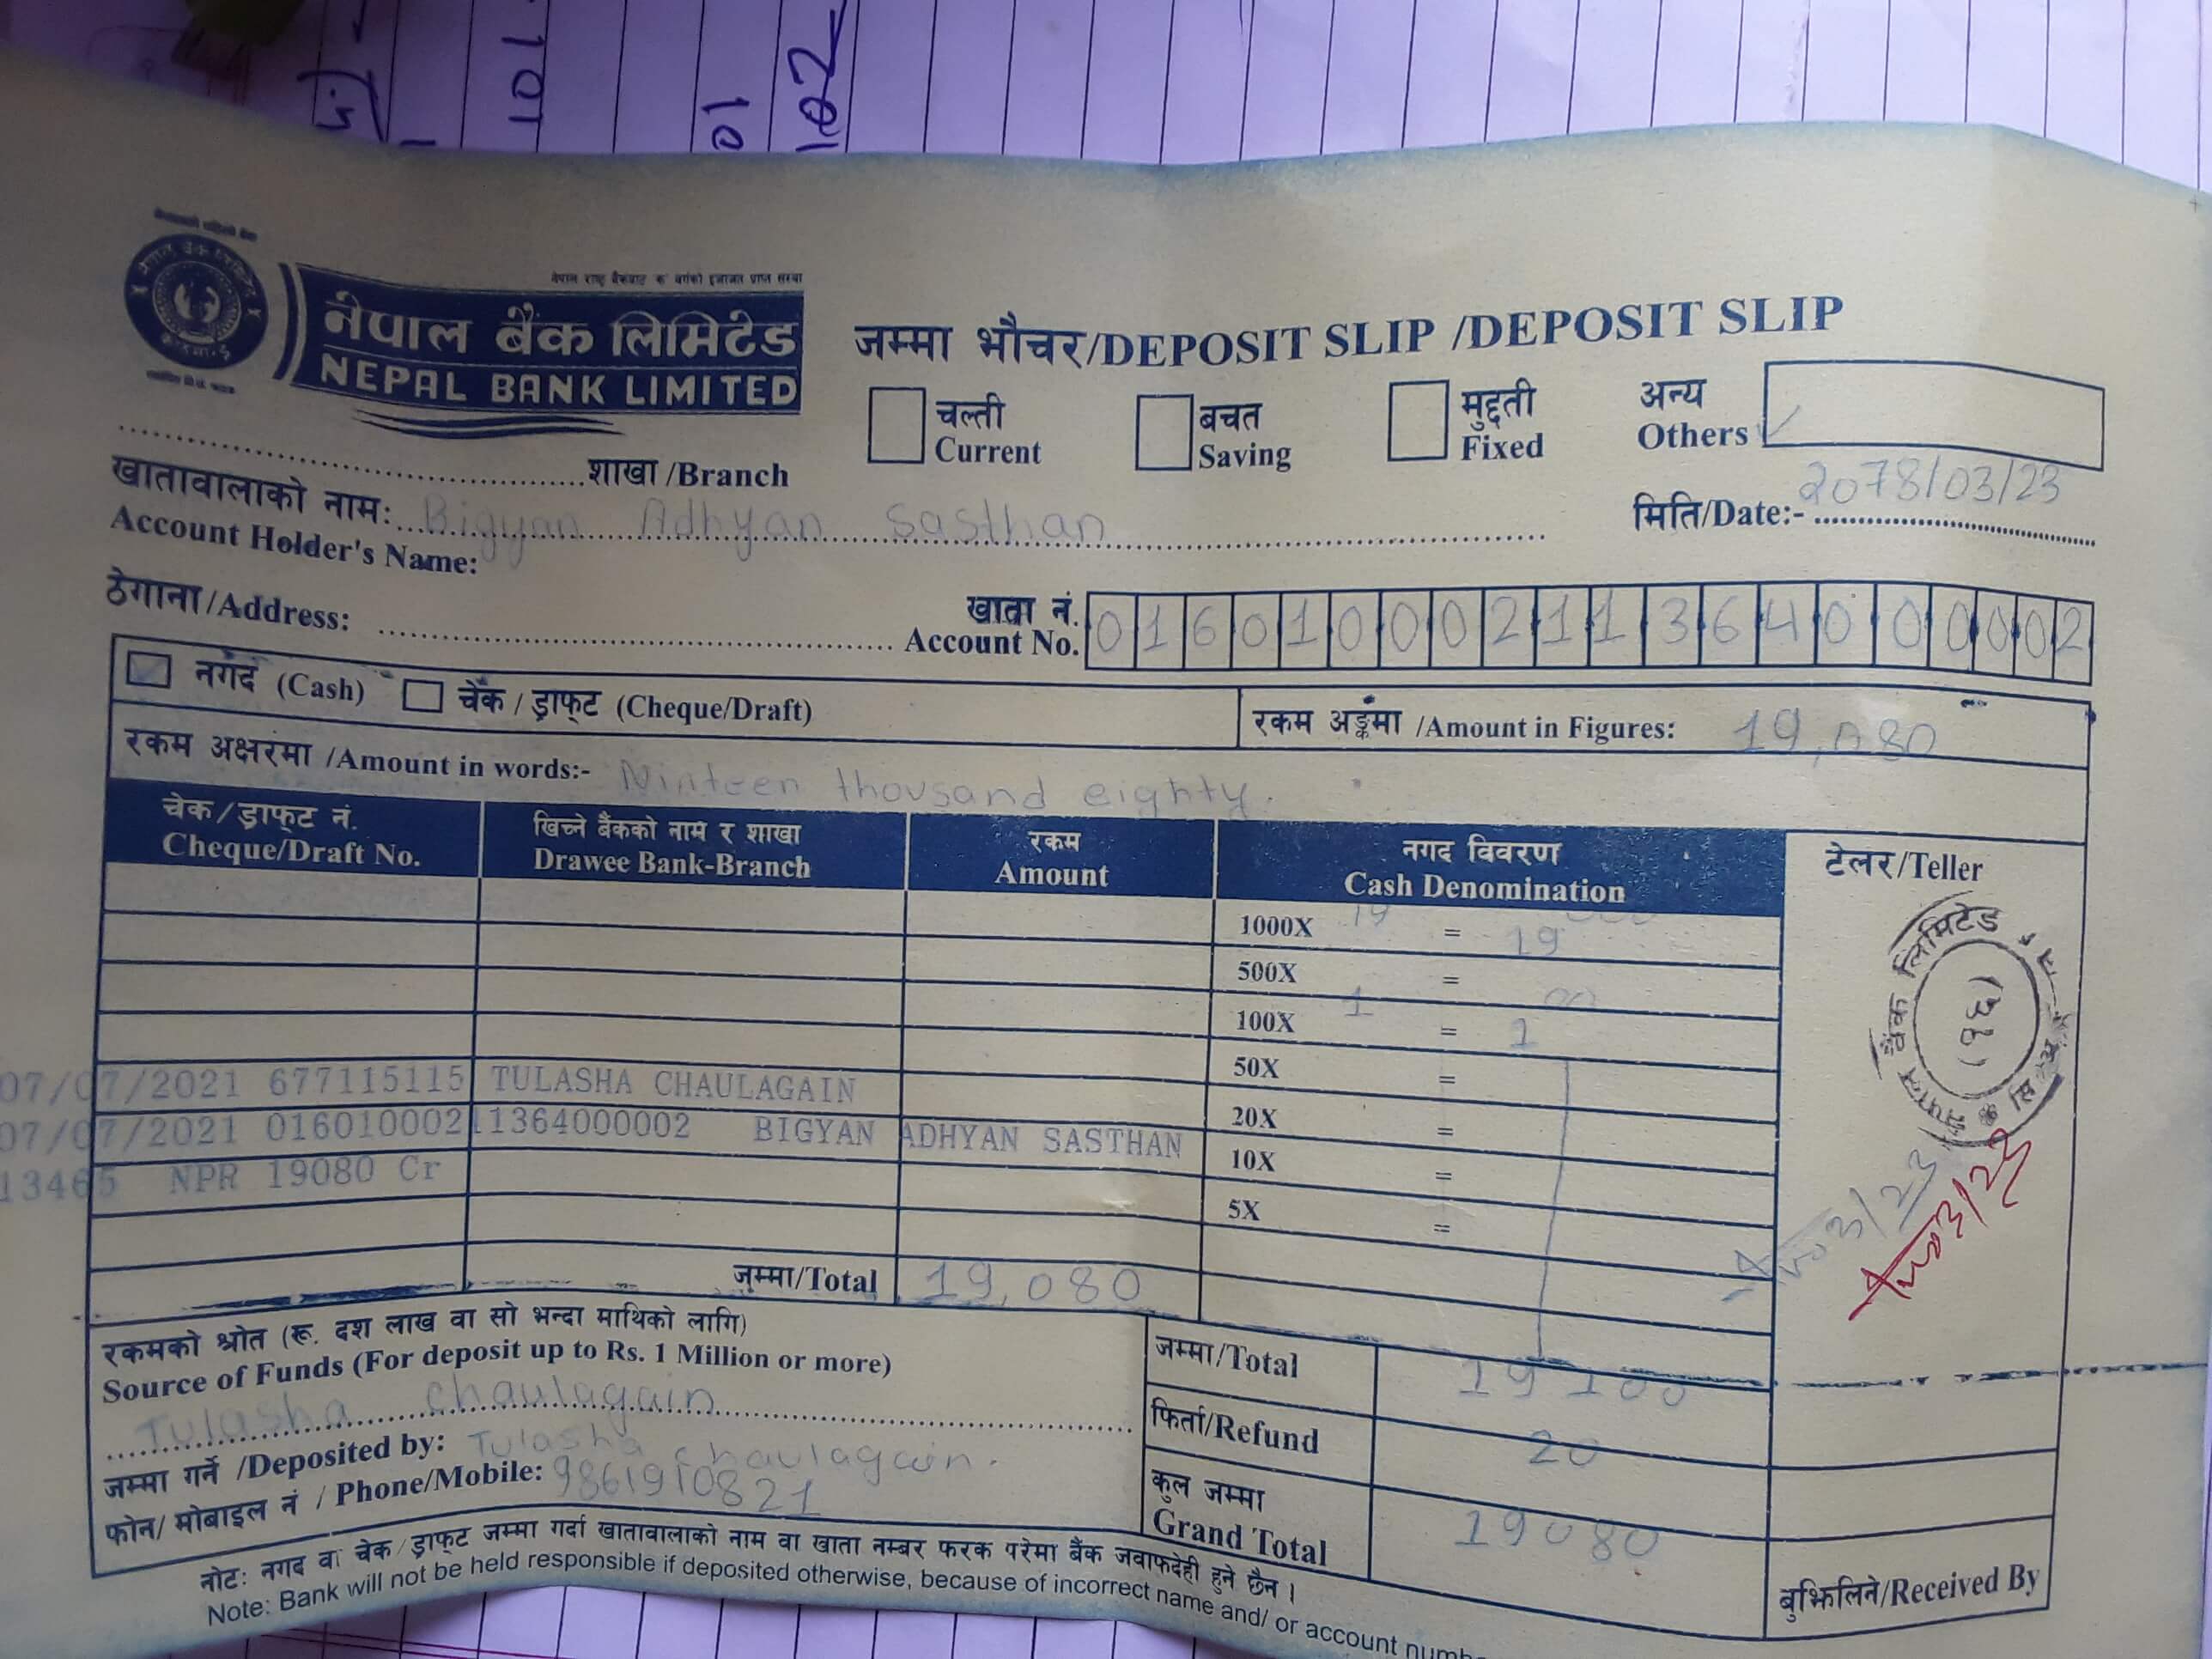 101
01
102
नेपाल बैंक लिमिटेड
NEPAL BANK LIMITED
जम्मा भौचर/DEPOSIT SLIP /DEPOSIT SLIP
चल्ती
Current
बचत
Saving
मुद्दती
Fixed
अन्य
Others
शाखा /Branch
मिति/Date:- 2078/03/23
खातावालाको नाम: Bigyan Adhyan Sasthan
Account Holder's Name:
ठेगाना/Address:
खाता नं.
Account No. 01601000211364000002
नगद (Cash) चेक / ड्राफ्ट (Cheque/Draft)
रकम अङ्कमा /Amount in Figures: 19,080
रकम अक्षरमा /Amount in words:- Ninteen thousand eighty.
चेक/ड्राफ्ट नं.
Cheque/Draft No.
खिच्ने बैंकको नाम र शाखा
Drawee Bank-Branch
रकम
Amount
नगद विवरण
Cash Denomination
टेलर/Teller
1000X 19 = 19
500X =
100X 1 = 1
50X =
20X =
10X =
5X =
नेपाल बैंक लिमिटेड
(१६)
07/07/2021 677115115 TULASHA CHAULAGAIN
07/07/2021 01601000211364000002 BIGYAN ADHYAN SASTHAN
13465 NPR 19080 Cr
03/23
03/23
जम्मा/Total 19,080
रकमको श्रोत (रू. दश लाख वा सो भन्दा माथिको लागि)
Source of Funds (For deposit up to Rs. 1 Million or more)
Tulasha Chaulagain
जम्मा गर्ने /Deposited by: Tulasha Chaulagain.
फोन/ मोबाइल नं / Phone/Mobile: 9861910821
जम्मा/Total 19100
फिर्ता/Refund 20
कुल जम्मा
Grand Total 19080
बुझिलिने/Received By
नोट: नगद वा चेक/ड्राफ्ट जम्मा गर्दा खातावालाको नाम वा खाता नम्बर फरक परेमा बैंक जवाफदेही हुने छैन ।
Note: Bank will not be held responsible if deposited otherwise, because of incorrect name and/ or account